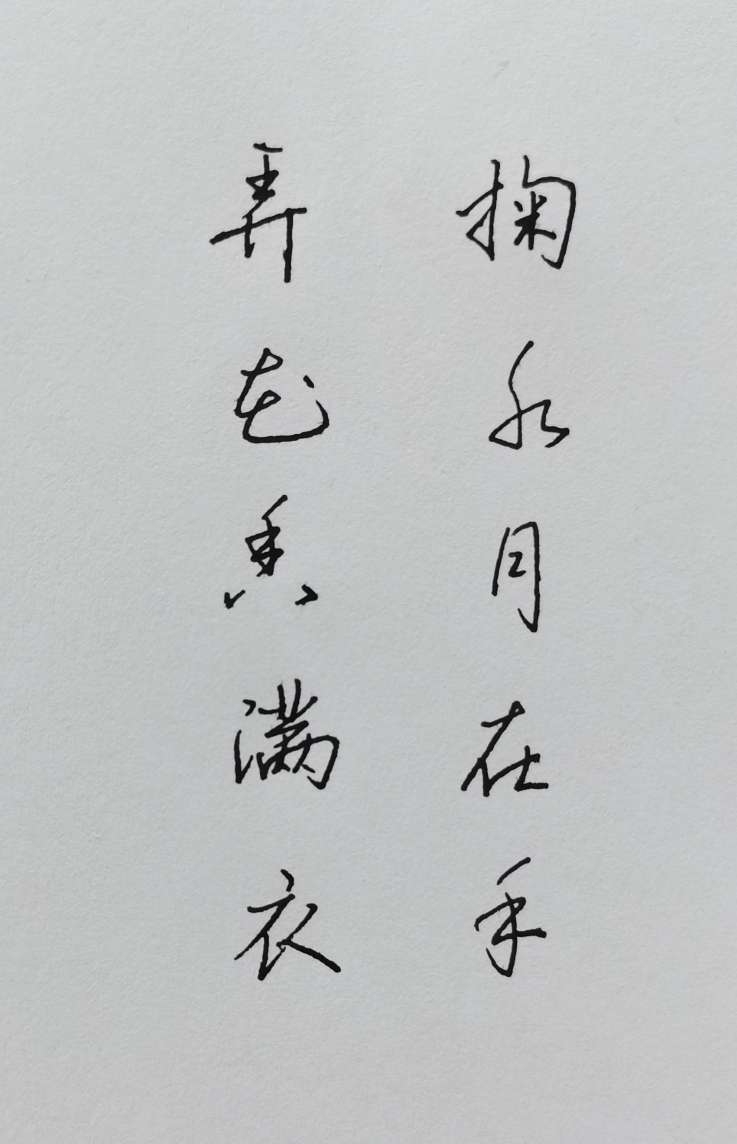 掬水月在手
弄花香满衣